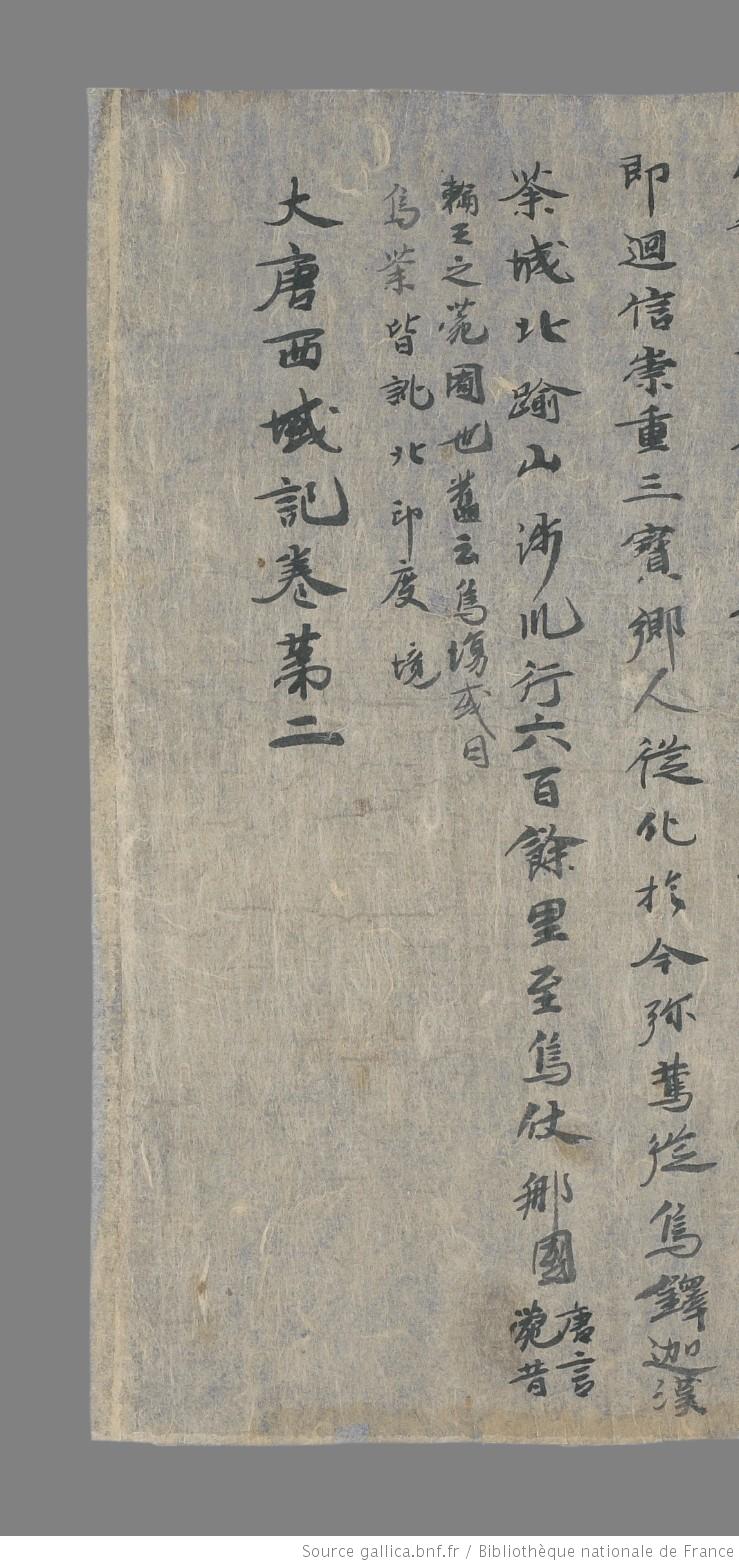 即迴信崇重三寶鄉人從化於今弥篤從烏鐸迦漢
荼城北踰山涉川行六百餘里至烏仗那國唐言菀昔
輪王之菀囿也舊云烏塲或曰
烏荼皆訛北印度境
大唐西域記卷第二
Source gallica.bnf.fr / Bibliothèque nationale de France